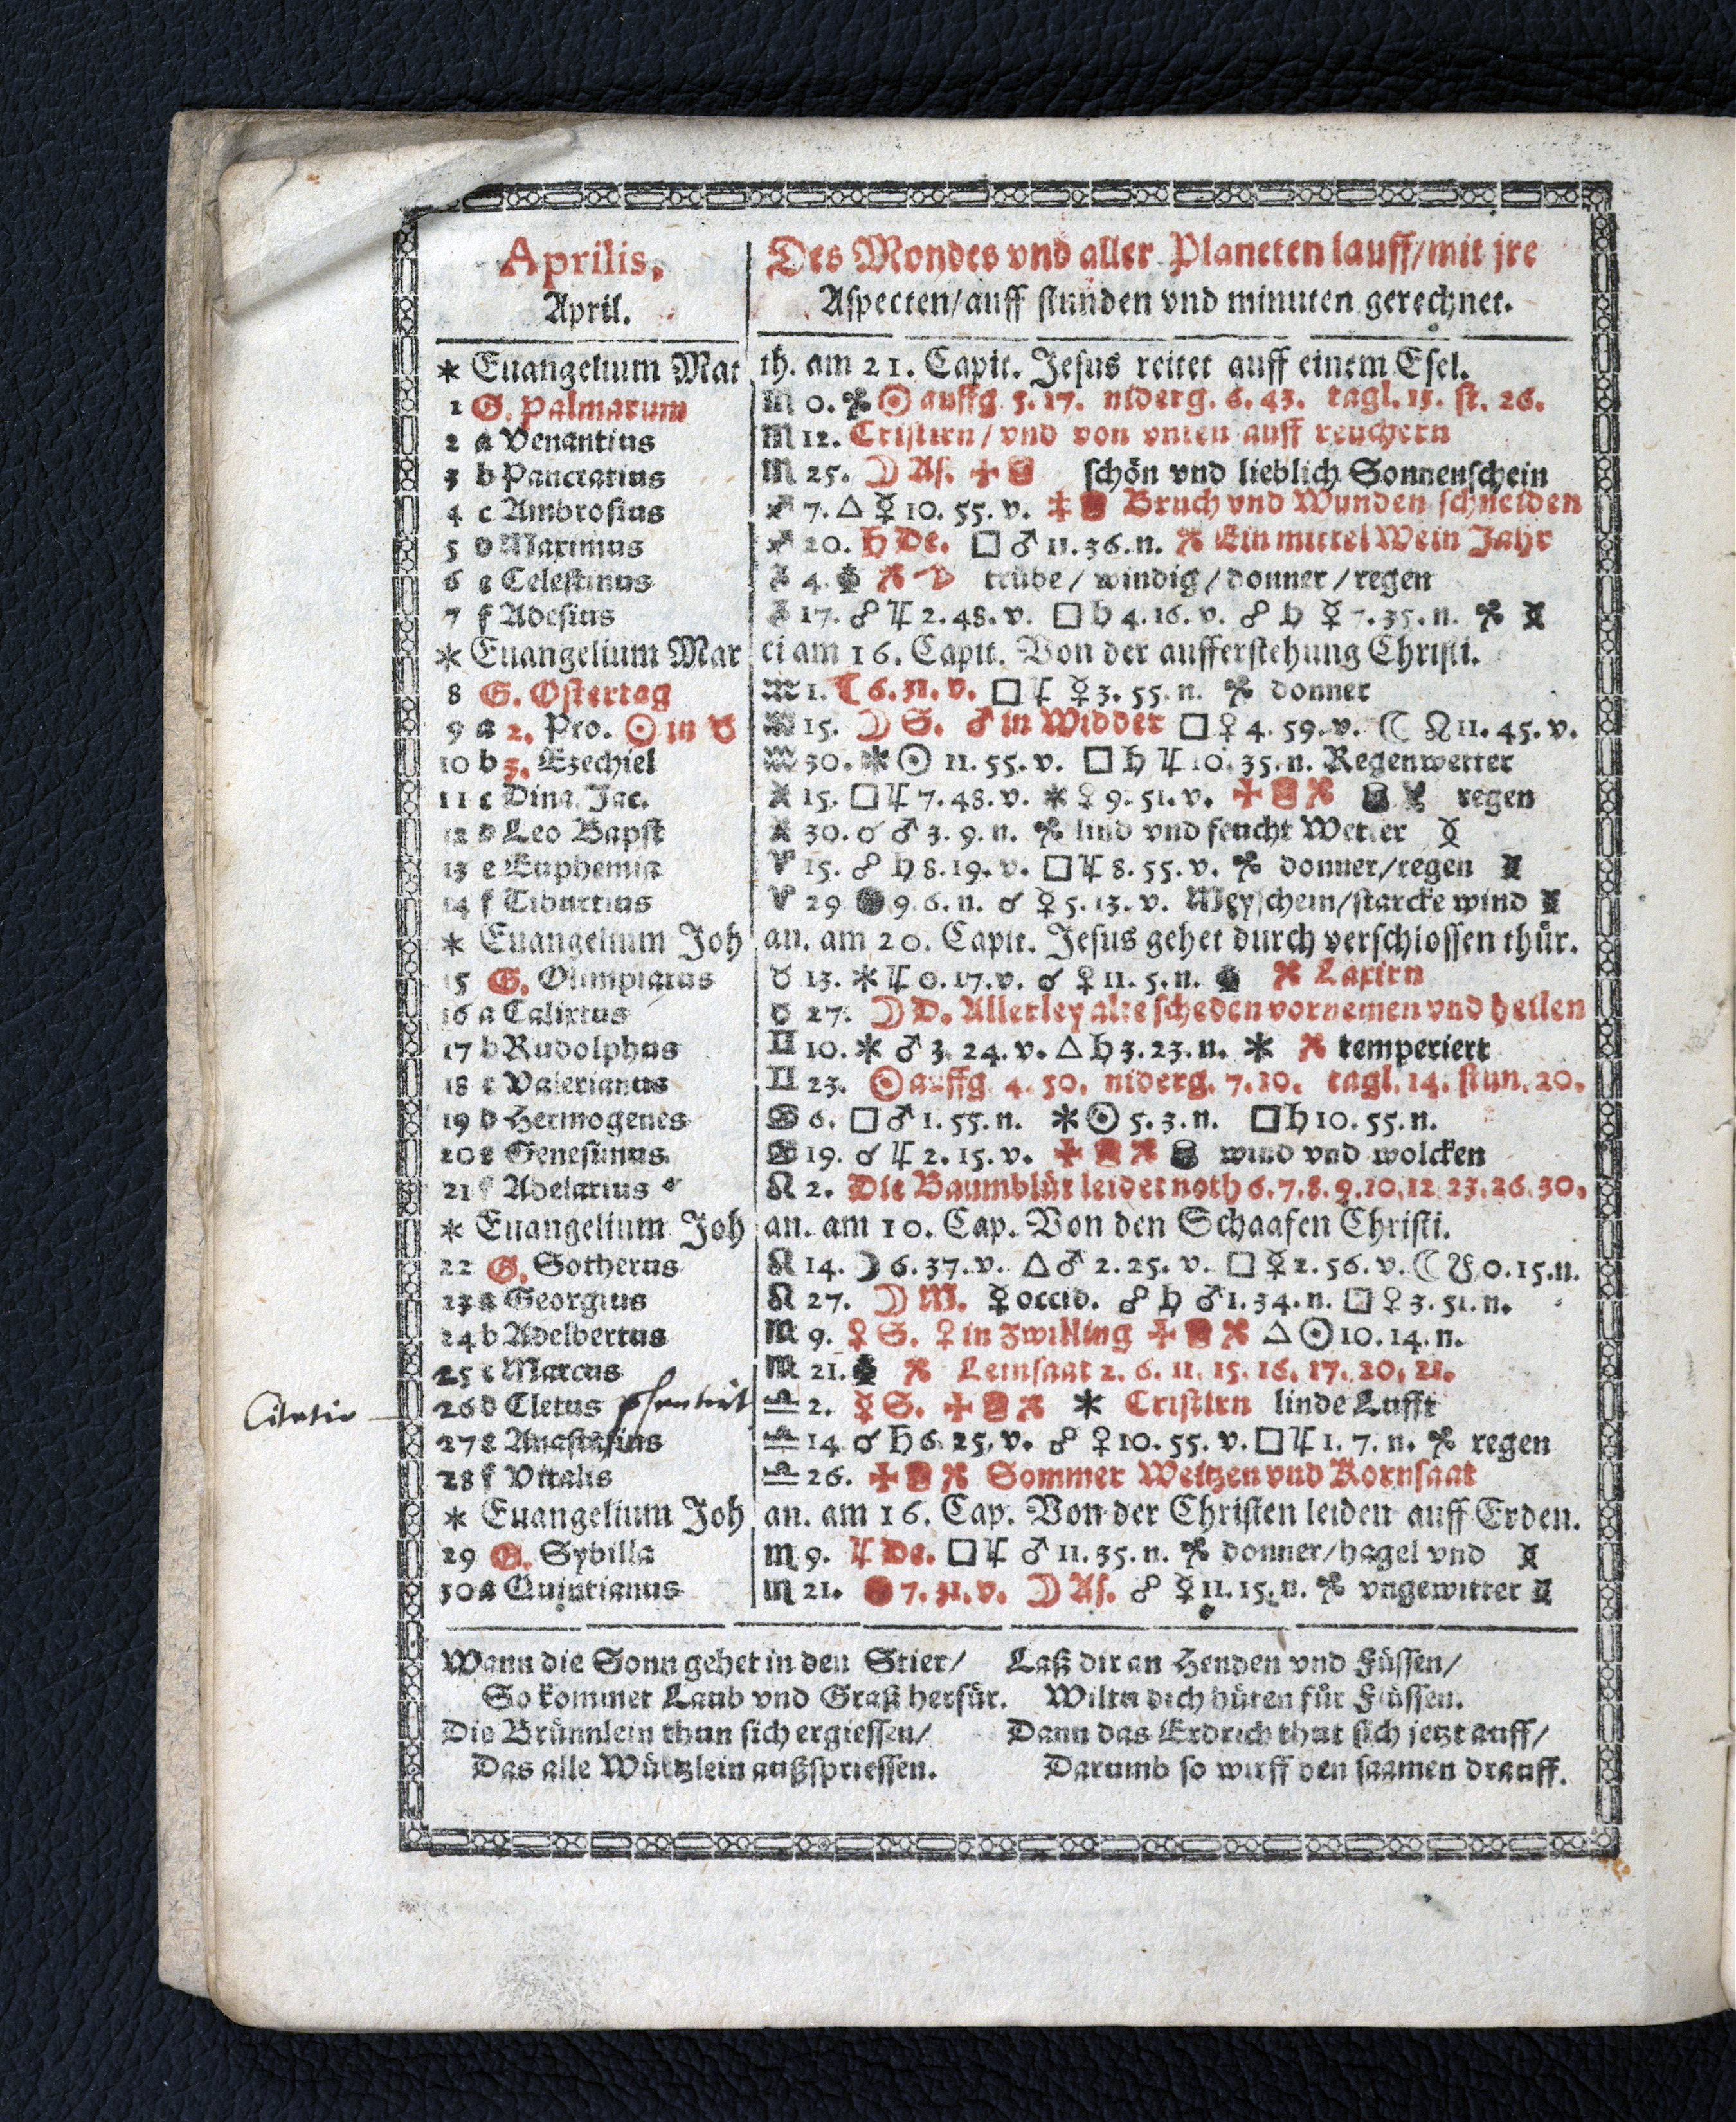 Aprilis,
April.
Des Mondes vnd aller Planeten lauff/mit jre
Aspecten/auff stunden vnd minuten gerechnet.
* Euangelium Mat th. am 21. Capit. Jesus reitet auff einem Esel.
1 G. Palmarum ♏ 0. ☉ auffg. 5. 17. niderg. 6. 43. tagl. 13. st. 26.
2 a Venantius ♏ 12. Cristirn/vnd von vnten auff reuchern
3 b Pancratius ♏ 25. ☽ As. schön vnd lieblich Sonnenschein
4 c Ambrosius ♐ 7. △ ☿ 10. 55. v. Bruch vnd Wunden schneiden
5 d Maximus ♐ 20. ♄ De. □ ♂ 11. 36. n. Ein mittel Wein Jahr
6 e Celestinus ♑ 4. trübe/windig/donner/regen
7 f Adesius ♑ 17. ☍ ♃ 2. 48. v. □ ♄ 4. 16. v. ☍ ♄ ☿ 7. 35. n.
* Euangelium Mar ci am 16. Capit. Von der aufferstehung Christi.
8 G. Ostertag ♒ 1. ☾ 6. 31. v. □ ♃ ☿ 3. 55. n. donner
9 a 2. Pro. ☉ in ♉ ♒ 15. ☽ S. ♂ in Widder □ ♀ 4. 59. v. ☾ ☊ 11. 45. v.
10 b 3. Ezechiel ♒ 30. * ☉ 11. 55. v. □ ♄ ♃ 10. 35. n. Regenwetter
11 c Dina Jac. ♓ 15. □ ♃ 7. 48. v. * ♀ 9. 51. v. regen
12 d Leo Bapst ♓ 30. ☌ ♂ 3. 9. n. lind vnd feucht Wetter
13 e Euphemia ♈ 15. ☍ ♄ 8. 19. v. □ ♃ 8. 55. v. donner/regen
14 f Tiburtius ♈ 29 ● 9. 6. n. ☌ ☿ 5. 13. v. Meyschein/starcke wind
* Euangelium Joh an. am 20. Capit. Jesus gehet durch verschlossen thür.
15 G. Olimpiatus ♉ 13. * ♃ 0. 17. v. ☌ ♀ 11. 5. n. Laxirn
16 a Calixtus ♉ 27. ☽ D. Allerley alte scheden vornemen vnd heilen
17 b Rudolphus ♊ 10. * ♂ 3. 24. v. △ ♄ 3. 23. n. * temperiert
18 c Valerianus ♊ 23. ☉ auffg. 4. 50. niderg. 7. 10. tagl. 14. stun. 20.
19 d Hermogenes ♋ 6. □ ♂ 1. 55. n. * ☉ 5. 3. n. □ ♄ 10. 55. n.
20 e Genesimus ♋ 19. ☌ ♃ 2. 15. v. wind vnd wolcken
21 f Adelarius ♌ 2. Die Baumblüt leidet noth 6. 7. 8. 9. 10. 12 23. 26. 30.
* Euangelium Joh an. am 10. Cap. Von den Schaafen Christi.
22 G. Sotherus ♌ 14. ☽ 6. 37. v. △ ♂ 2. 25. v. □ ☿ 2. 56. v. ☾ ☋ 0. 15. n.
23 a Georgius ♌ 27. ☽ M. ☿ occid. ☍ ♄ ♂ 1. 34. n. □ ♀ 3. 51. n.
24 b Adelbertus ♍ 9. ♀ S. ♀ in Zwilling △ ☉ 10. 14. n.
25 c Marcus ♍ 21. Leinsaat 2. 6. 11. 15. 16. 17. 20. 21.
Citatio
26 d Cletus ♎ 2. ☿ S. * Cristirn linde Lufft
27 e Anastasius ♎ 14 ☌ ♄ 6. 25. v. ☍ ♀ 10. 55. v. □ ♃ 1. 7. n. regen
28 f Vitalis ♎ 26. Sommer Weitzen vnd Kornsaat
* Euangelium Joh an. am 16. Cap. Von der Christen leiden auff Erden.
29 G. Sybilla ♏ 9. ♃ De. □ ♃ ♂ 11. 35. n. donner/hagel vnd
30 a Quintianus ♏ 21. ● 7. 31. v. ☽ As. ☍ ☿ 11. 15. n. vngewitter
Wann die Sonn gehet in den Stier/
So kommet Laub vnd Graß herfür.
Die Brünnlein thun sich ergiessen/
Das alle Würtzlein außspriessen.
Laß dir an Henden vnd Füssen/
Wiltu dich hüten für Flüssen.
Dann das Erdrich thut sich jetzt auff/
Darumb so wirff den saamen drauff.